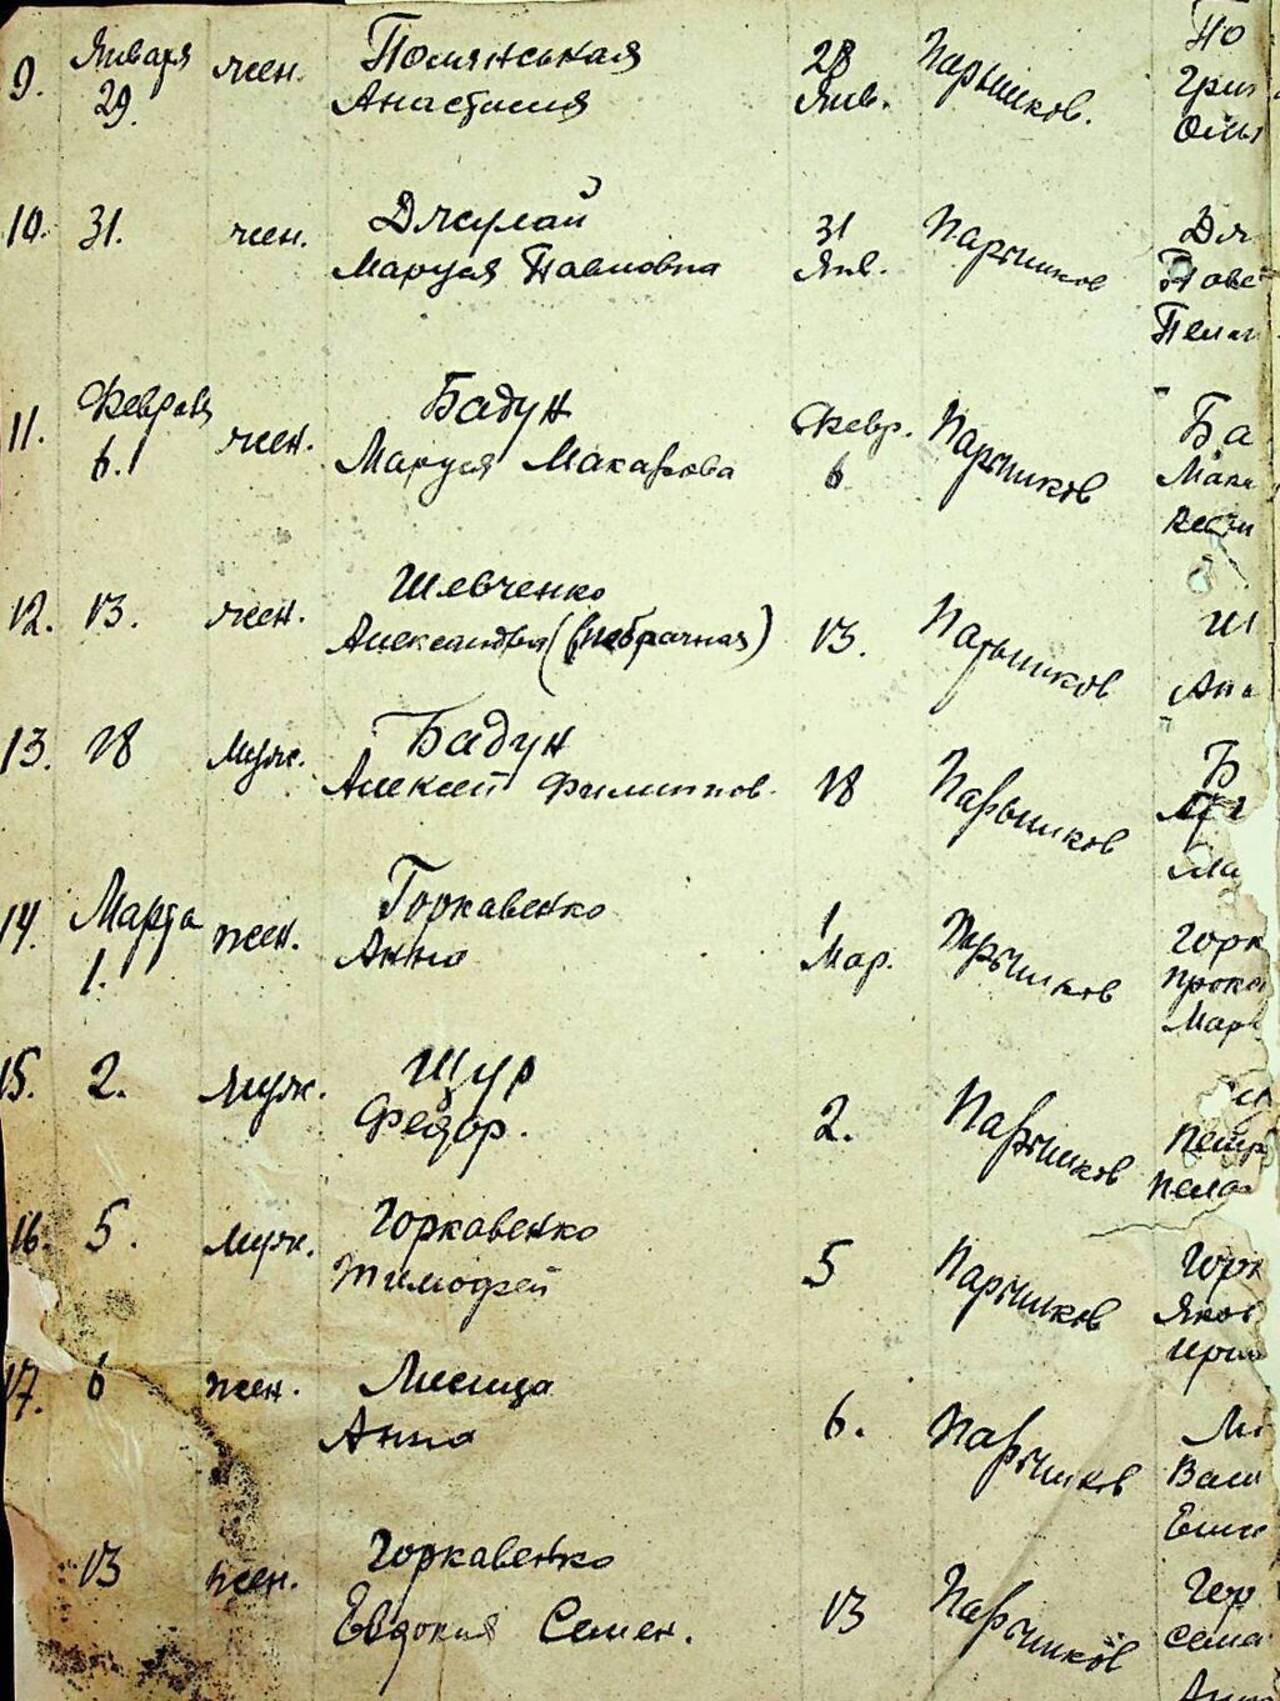 9. Января 29. жен. Полянськая Анастасия 28 Янв. Парышков. По
Гри
Оль
10. 31. жен. Джулай Маруся Павловна 31 Янв. Парышков Дж
Паве
Пела
11. Февраля 6. жен. Бадун Маруся Макарова Февр. 6 Парышков Ба
Мака
12. 13. жен. Шевченко Александра (внебрачная) 13. Парышков Ш
Ан
13. 18 муж. Бадун Алексей Филиппов. 18 Парышков Б
Ма
14. Марта 1. жен. Горкавенко Анна 1 Мар. Парышков Горк
Проко
Мар
15. 2. муж. Щур Федор. 2. Парышков
Петр
Пела
16. 5. муж. Горкавенко Тимофей 5 Парышков Горк
Яков
Ири
17. 6 жен. Лисица Анна 6. Парышков Ли
Васи
13 жен. Горкавенко Евдокия Семен. 13 Парышков Гор
Сем